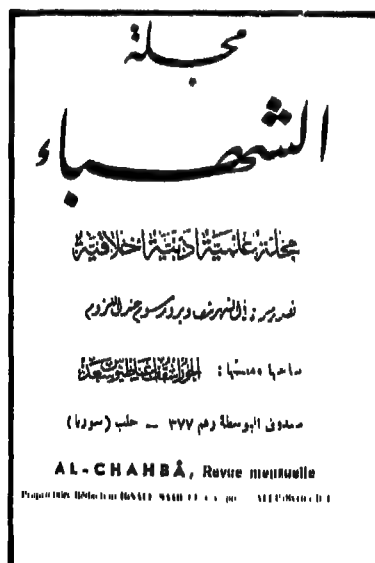 مجلة
الشهباء
مجلة علمية ادبية اخلاقية
تصدر مرة في الشهر
صاحبها ومنشئها: الخوراسقف اغناطيوس سعد
صندوق البوسطة رقم ٣٧٧ — حلب (سوريا)
AL-CHAHBÂ, Revue mensuelle